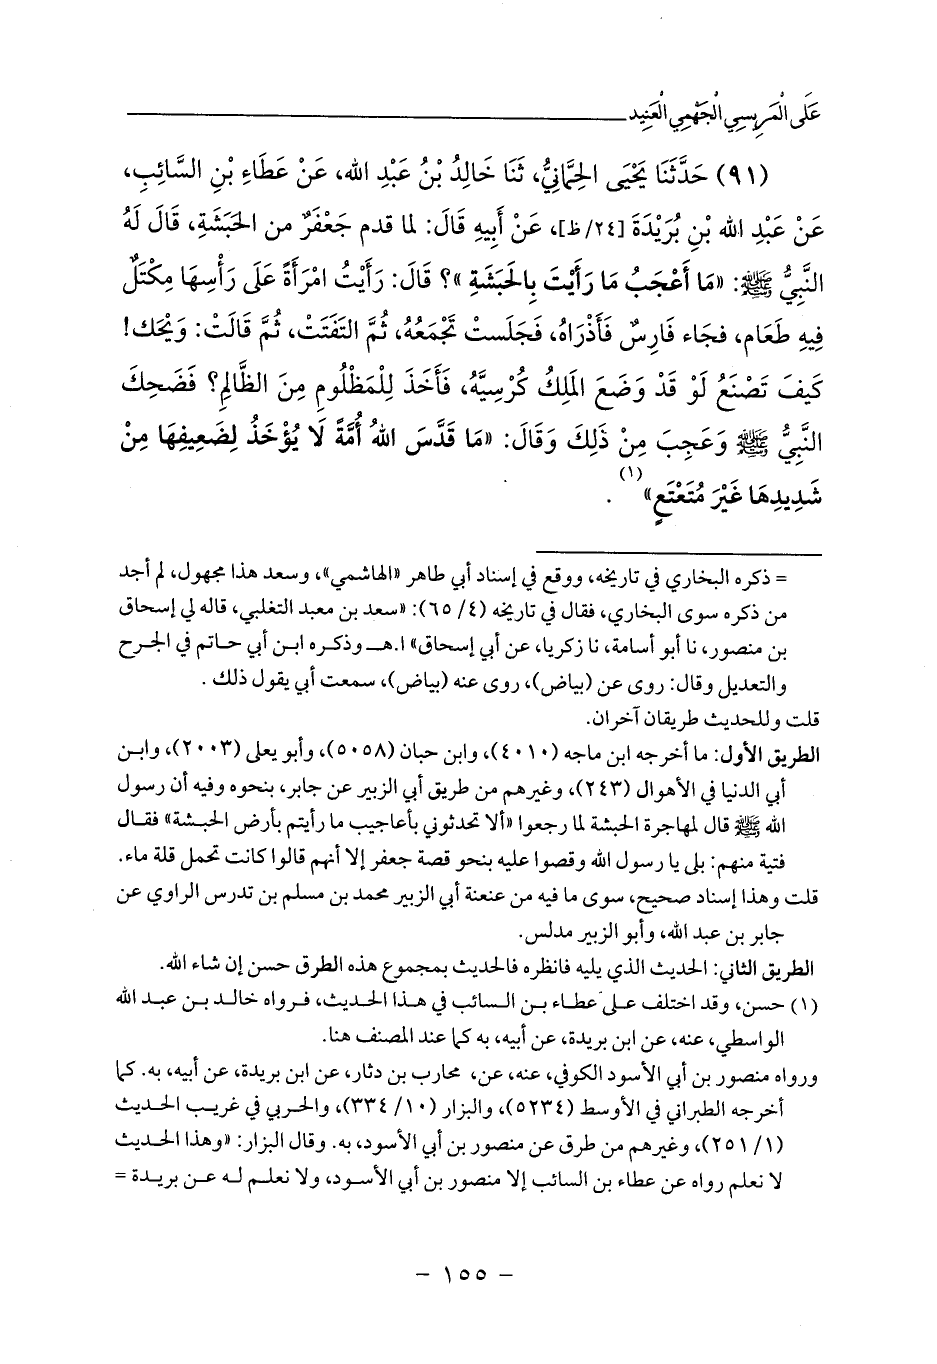 عَلَى الْمَرِيسِي الْجَهْمِي الْعَنِيد
(٩١) حَدَّثَنَا يَحْيَى الحِمَّانِيُّ، ثَنَا خَالِدُ بْنُ عَبْدِ الله، عَنْ عَطَاءِ بْنِ السَّائِبِ،
عَنْ عَبْدِ الله بْنِ بُرَيْدَةَ [٢٤/ظ]، عَنْ أَبِيهِ قَالَ: لما قدم جَعْفَرٌ من الحَبَشَةِ، قَالَ لَهُ
النَّبِيُّ ﷺ: «مَا أَعْجَبُ مَا رَأَيْتَ بِالحَبَشَةِ»؟ قَالَ: رَأَيْتُ امْرَأَةً عَلَى رَأْسِهَا مِكْتَلٌ
فِيهِ طَعَام، فجَاء فَارِسٌ فَأَذْرَاهُ، فَجَلَست تْجَمَعُهُ، ثُمَّ التَفَتَتْ، ثُمَّ قَالَتْ: وَيْحَك!
كَيفَ تَصْنَعُ لَوْ قَدْ وَضَعَ المَلِكُ كُرْسِيَّهُ، فَأَخَذَ لِلْمَظْلُومِ مِنَ الظَّالِمِ؟ فَضَحِكَ
النَّبِيُّ ﷺ وَعَجِبَ مِنْ ذَلِكَ وَقَالَ: «مَا قَدَّسَ اللهُ أُمَّةً لَا يُؤْخَذُ لِضَعِيفِهَا مِنْ
شَدِيدِهَا غَيْرَ مُتَعْتَعٍ»(١) .
= ذكره البخاري في تاريخه، ووقع في إسناد أبي طاهر «الهاشمي»، وسعد هذا مجهول، لم أجد
من ذكره سوى البخاري، فقال في تاريخه (٤/ ٦٥): «سعد بن معبد التغلبي، قاله لي إسحاق
بن منصور، نا أبو أسامة، نا زكريا، عن أبي إسحاق» ا.هـ وذكره ابن أبي حاتم في الجرح
والتعديل وقال: روى عن (بياض)، روى عنه (بياض)، سمعت أبي يقول ذلك .
قلت وللحديث طريقان آخران.
الطريق الأول: ما أخرجه ابن ماجه (٤٠١٠)، وابن حبان (٥٠٥٨)، وأبو يعلى (٢٠٠٣)، وابن
أبي الدنيا في الأهوال (٢٤٣)، وغيرهم من طريق أبي الزبير عن جابر، بنحوه وفيه أن رسول
الله ﷺ قال لمهاجرة الحبشة لما رجعوا «ألا تحدثوني بأعاجيب ما رأيتم بأرض الحبشة» فقال
فتية منهم: بلى يا رسول الله وقصوا عليه بنحو قصة جعفر إلا أنهم قالوا كانت تحمل قلة ماء.
قلت وهذا إسناد صحيح، سوى ما فيه من عنعنة أبي الزبير محمد بن مسلم بن تدرس الراوي عن
جابر بن عبد الله، وأبو الزبير مدلس.
الطريق الثاني: الحديث الذي يليه فانظره فالحديث بمجموع هذه الطرق حسن إن شاء الله.
(١) حسن، وقد اختلف على عطاء بن السائب في هذا الحديث، فرواه خالد بن عبد الله
الواسطي، عنه، عن ابن بريدة، عن أبيه، به كما عند المصنف هنا.
ورواه منصور بن أبي الأسود الكوفي، عنه، عن، محارب بن دثار، عن ابن بريدة، عن أبيه، به. كما
أخرجه الطبراني في الأوسط (٥٢٣٤)، والبزار (١٠/ ٣٣٤)، والحربي في غريب الحديث
(١/ ٢٥١)، وغيرهم من طرق عن منصور بن أبي الأسود، به. وقال البزار: «وهذا الحديث
لا نعلم رواه عن عطاء بن السائب إلا منصور بن أبي الأسود، ولا نعلم له عن بريدة =
- ١٥٥ -